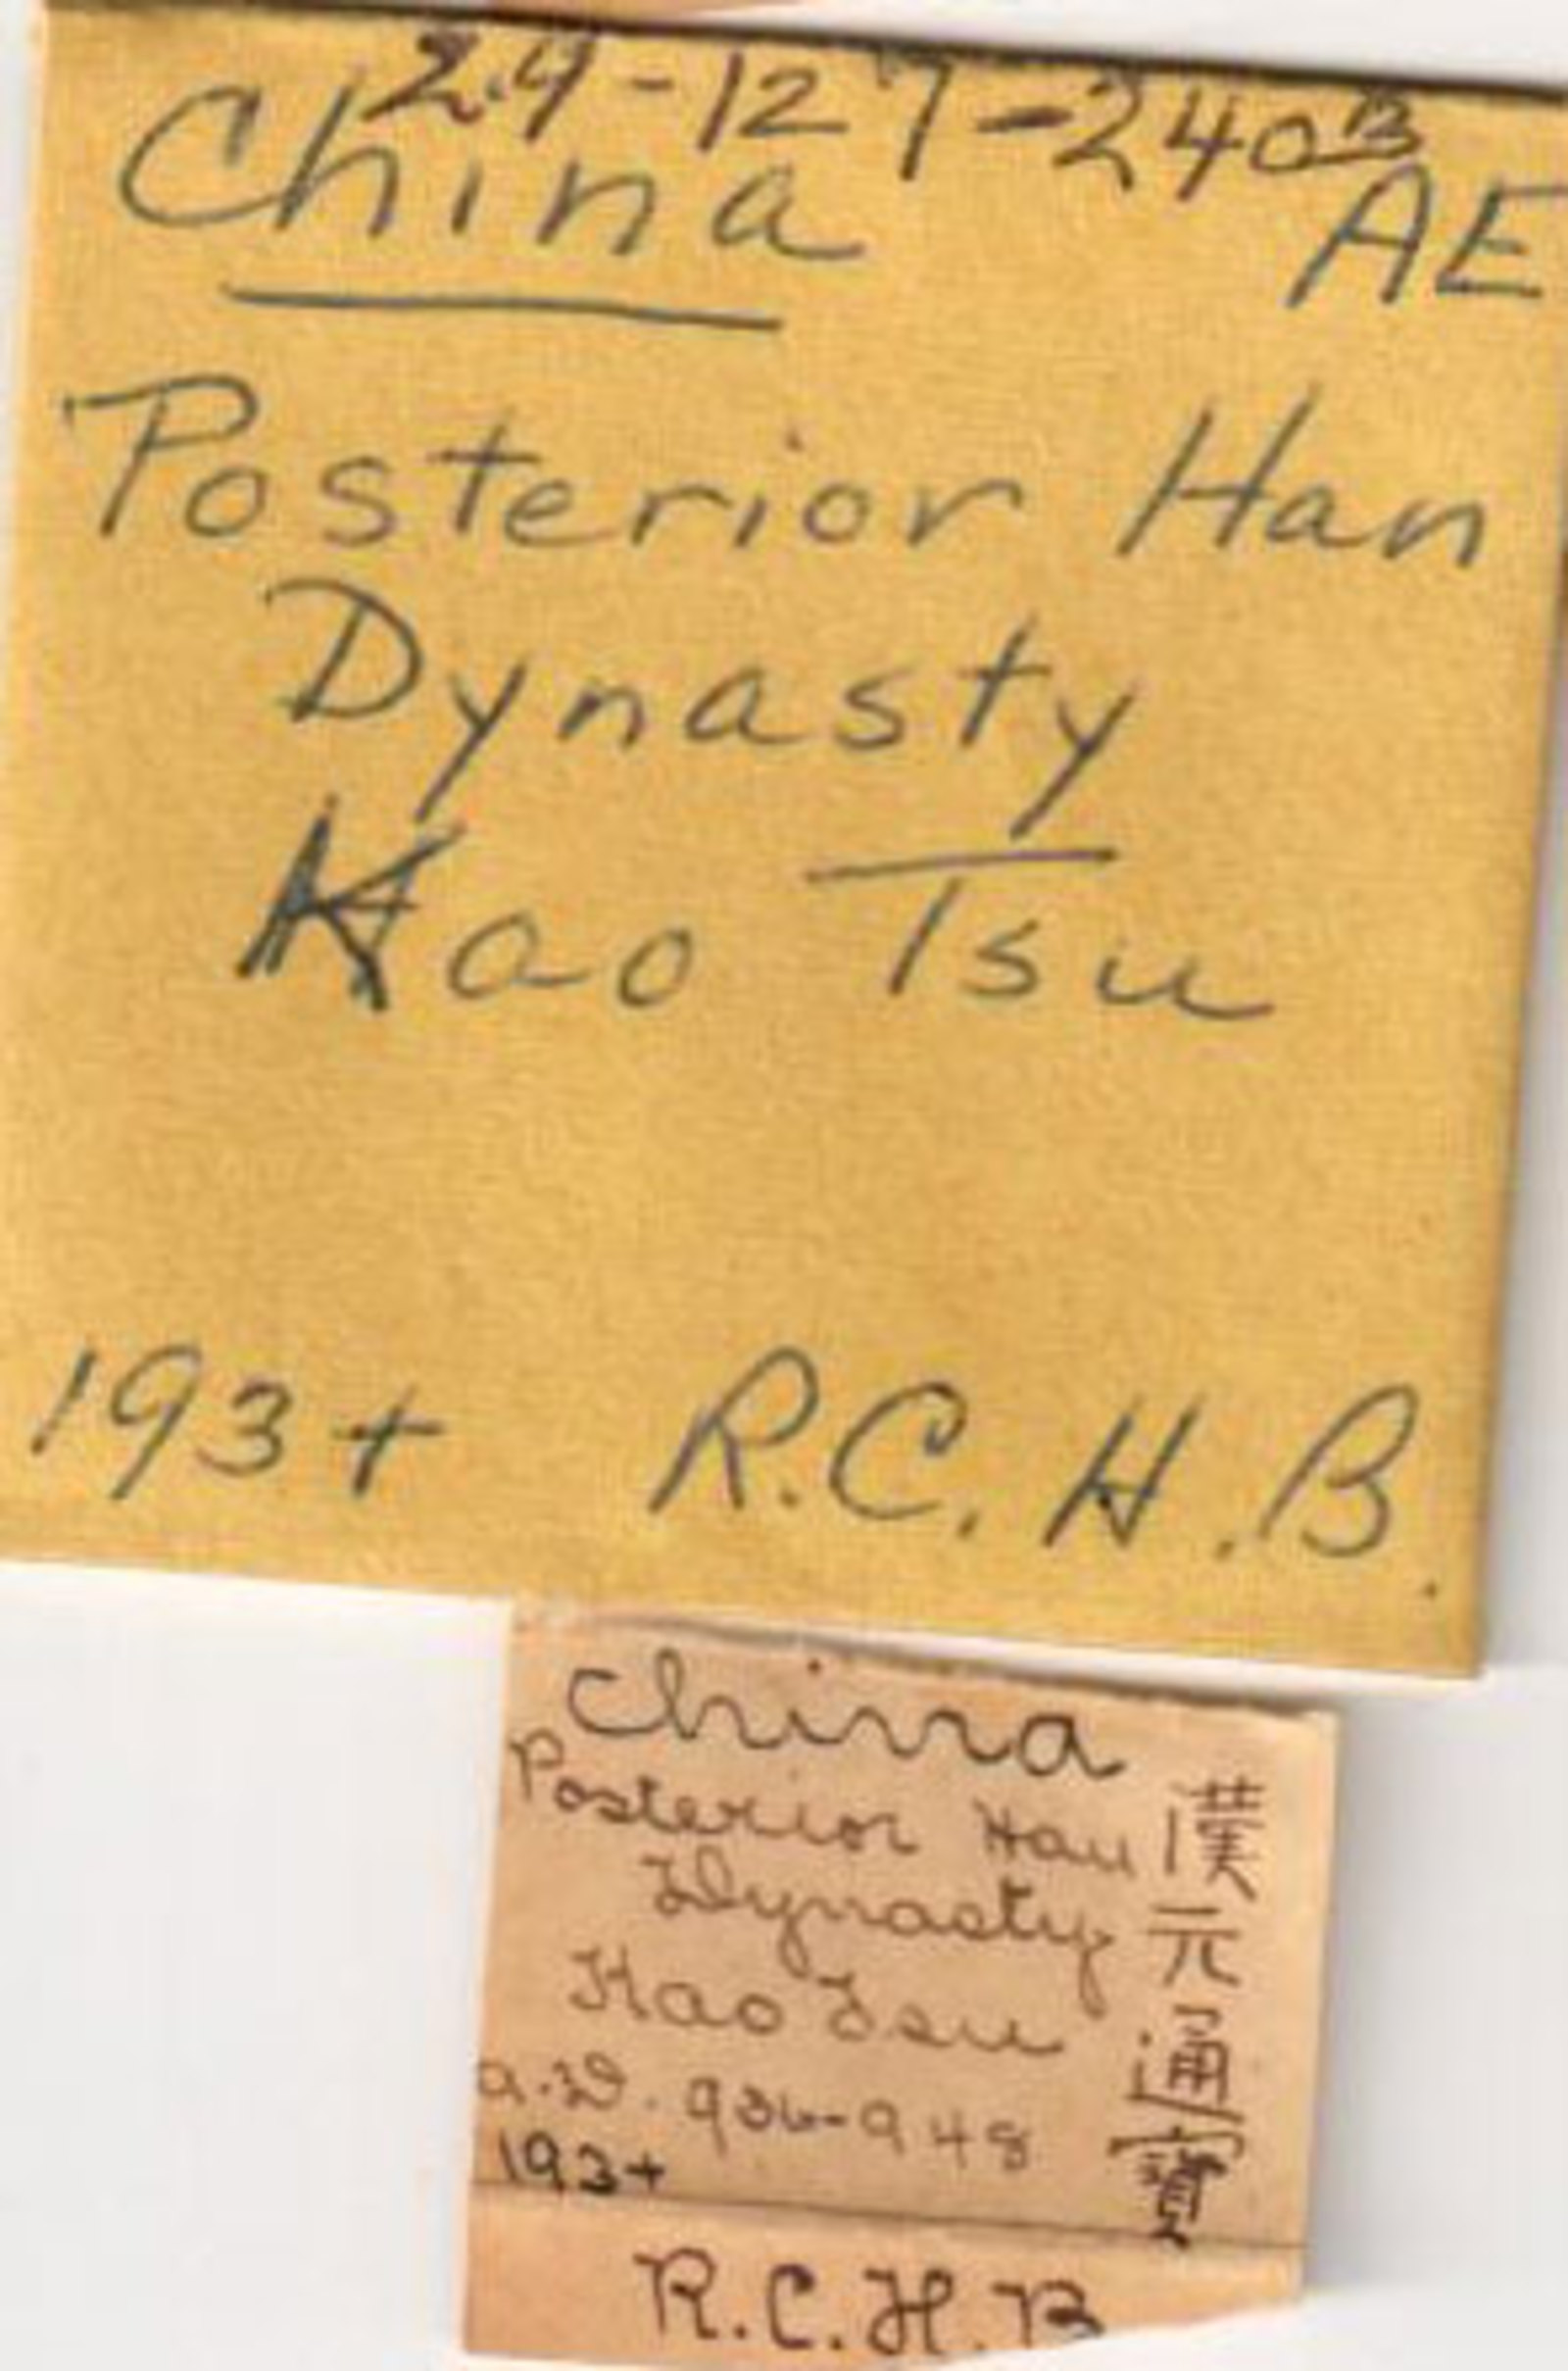 29-127-240B
China
AE
Posterior Han
Dynasty
Kao Tsu
193+ R.C.H.B.
China
Posterior Han
Dynasty
Kao Tsu
A.D. 936-948
193+
漢元通寳
R.C.H.B